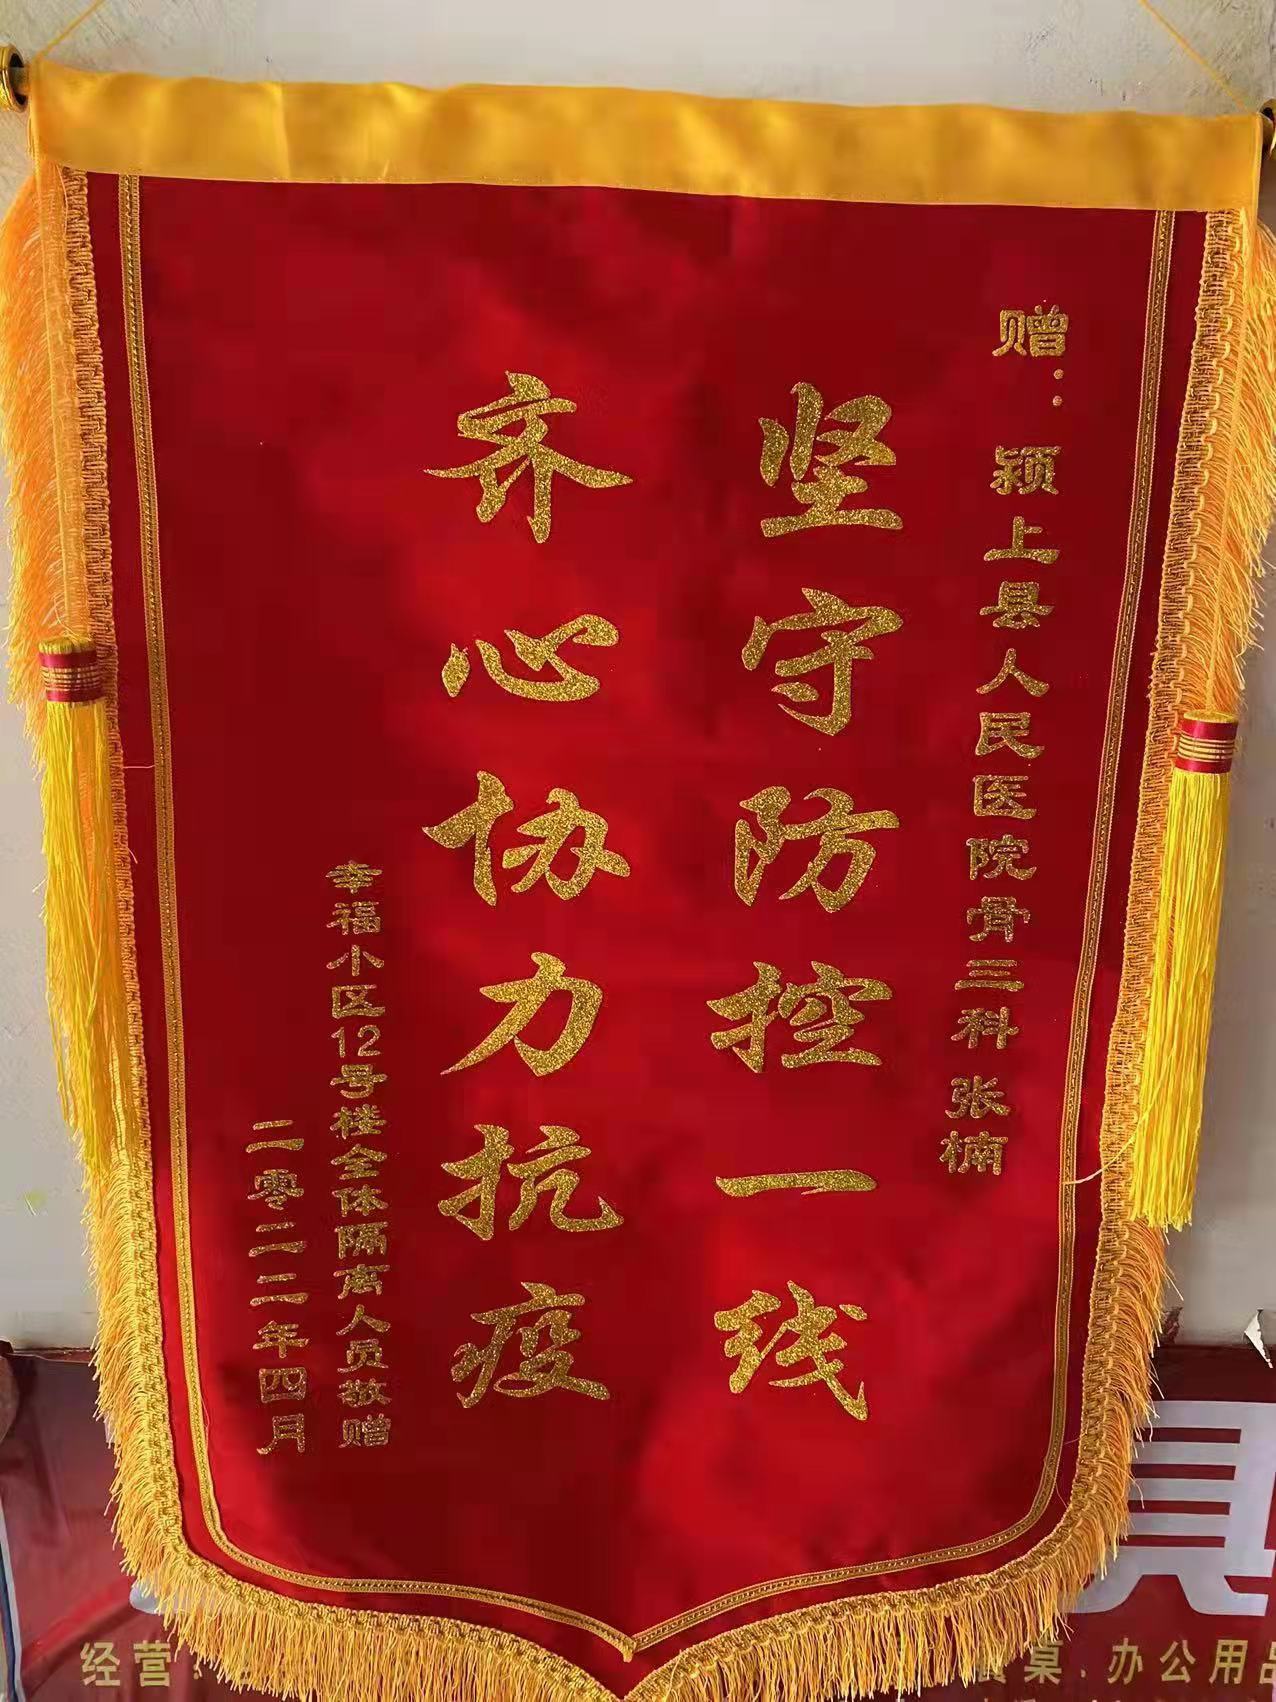 赠：颍上县人民医院骨三科 张楠
坚守防控一线
齐心协力抗疫
幸福小区12号楼全体隔离人员敬赠
二零二二年四月
经营
桌.办公用品